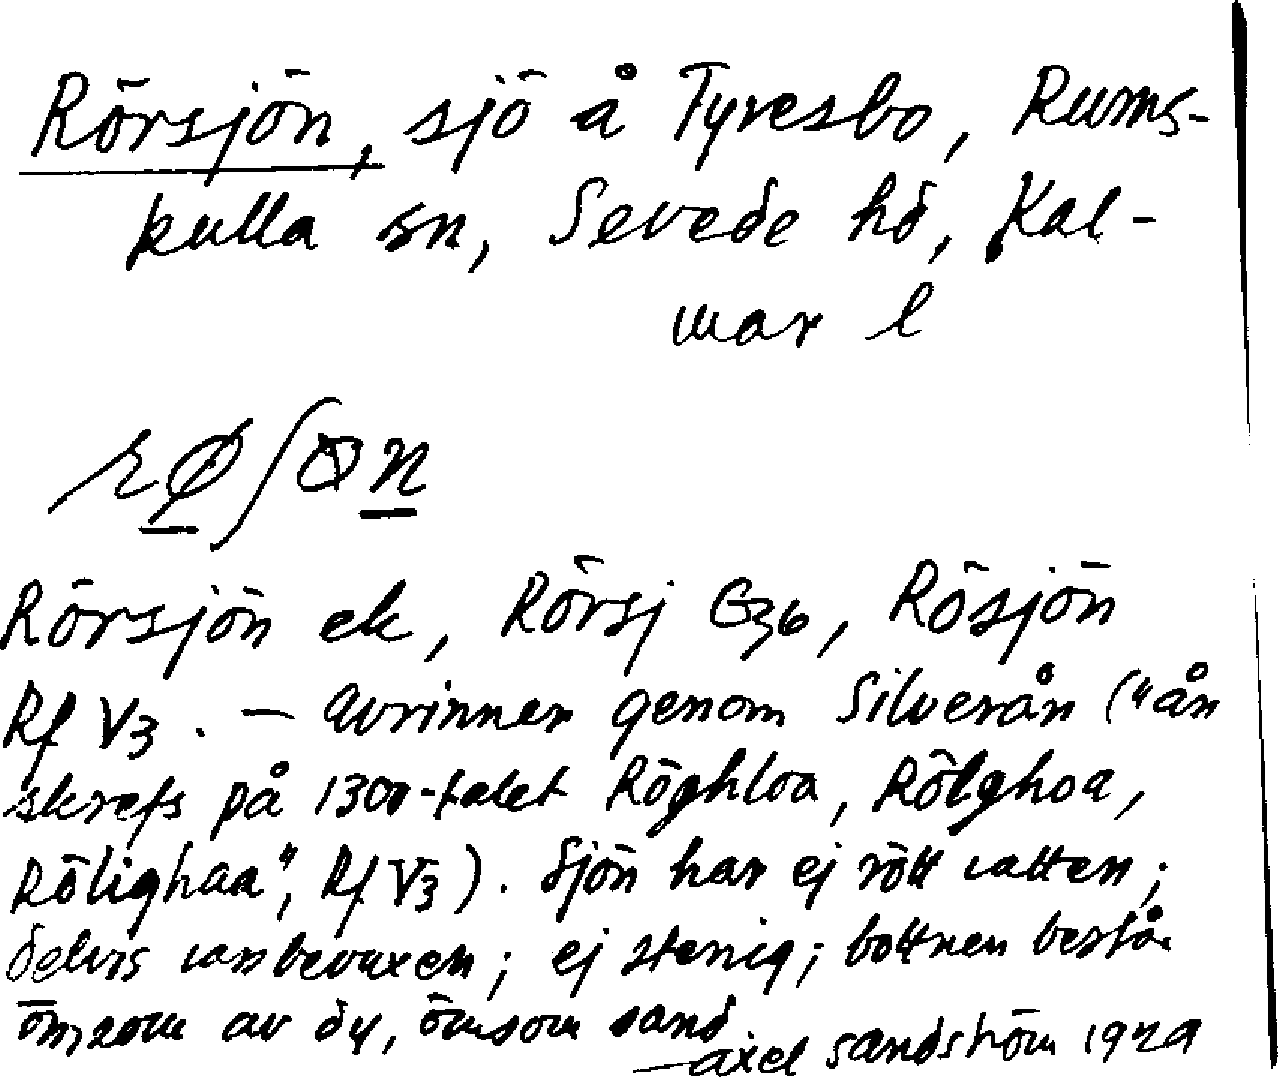 Rörsjön, sjö å Tyresbo, Rums-
kulla sn, Sevede hd, Kal-
mar l
Rörsjön ek, Rörsj G36, Rösjön
Rf V3. – avrinner genom Silverån ("ån
skrefs på 1300-talet Röghloa, Rölghoa,
Rölighaa", Rf V3). Sjön har ej rött vatten;
delvis vassbevuxen; ej stenig; bottnen består
ömsom av dy, ömsom sand.
– Axel Sandström 1929